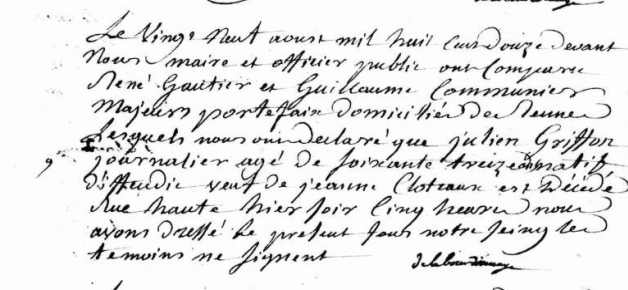 Le Vingt Neuf aoust mil huit cens douze devant
Nous maire et officier public ont Comparu
René Gautier et Guillaume Communier
Majeurs portefaix domiciliés de Rennes
Lesquels nous ont declaré que julien Griffon
journalier agé de soixante treize ans natif
d'iffendic veuf de jeanne Cloteaux est décédé
Rue haute hier soir Cinq heures nous
avons dressé le présent sous notre seing les
temoins ne signent